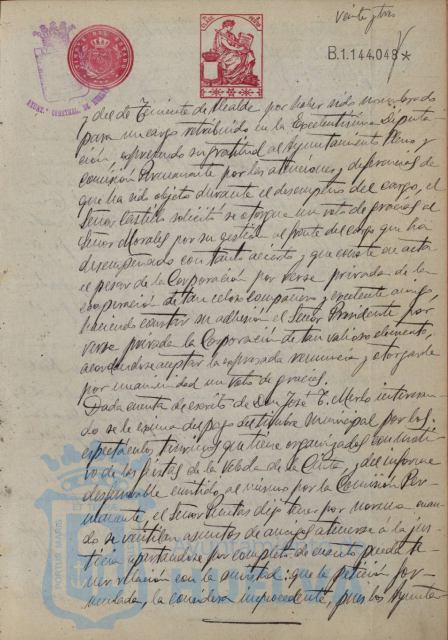 veinte y tres
B.1.144.048 *
y de Teniente de Alcalde por haber sido nombrado
para un cargo retribuido en la Excelentísima Diputa-
ción expresando su gratitud al Ayuntamiento Pleno y
Comisión Permanente por las atenciones y deferencias de
que ha sido objeto durante el desempeño del cargo, el
Señor Castillo solicitó se otorgue un voto de gracias al
Señor Morales por su gestión al frente del cargo que ha
desempeñado con tanto acierto y que conste en acta
el pesar de la Corporación por verse privada de la
cooperación de tan celoso compañero y excelente amigo
haciendo constar su adhesión el Señor Presidente por
verse privada la Corporación de tan valioso elemento,
acordándose aceptar la expresada renuncia y otorgarle
por unanimidad un voto de gracias.
Dada cuenta de escrito de Don José T. Merlo interesan-
do se le exima del pago del timbre municipal por los
espectáculos taurinos que tiene organizados con moti-
vo de las fiestas de la Velada de la Cinta, y del informe
desfavorable emitido al mismo por la Comisión Per-
manente, el Señor dijo tener por norma cuan-
do se ventilan asuntos de amigos atenerse a la jus-
ticia apartándose por completo de cuanto pueda te-
ner relación con la amistad: que la petición for-
mulada, la considera improcedente, pues los Ayunta-
PORTUS MARIS